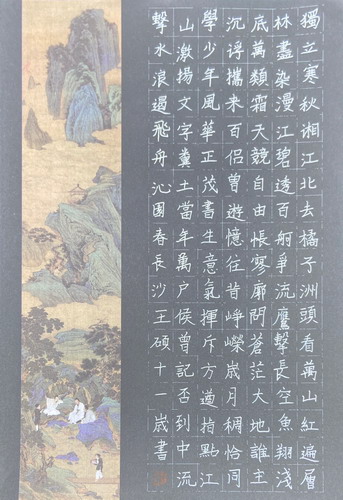 獨立寒秋湘江北去橘子洲頭看萬山紅遍層
林盡染漫江碧透百舸爭流鷹擊長空魚翔淺
底萬類霜天競自由悵寥廓問蒼茫大地誰主
沉浮攜來百侶曾遊憶往昔崢嶸歲月稠恰同
學少年風華正茂書生意氣揮斥方遒指點江
山激揚文字糞土當年萬户侯曾記否到中流
擊水浪遏飛舟沁園春長沙王碩十一歲書